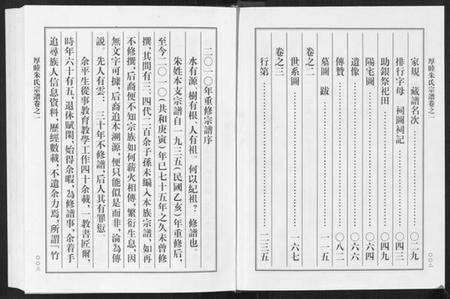 厚睦朱氏宗譜卷之一
家規　藏譜名次　〇二九
排行字母　祠圖祠記　〇四三
助銀祭祀田　〇四九
陽宅圖　〇六四
遺像　〇六六
傳贊　〇八二
墓圖　跋　一一五
卷之二
世系圖　一六七
卷之三
行第　二三五
二〇一〇年重修宗譜序
水有源，樹有根，人有祖，何以紀祖？修譜也。
朱姓本支宗譜自一九三五（民國乙亥）年重修後，
至今二〇一〇（共和庚寅）年已七十五年之久未曾修
撰，其間有三、四代二百余子孫未編入本族宗譜，如再
不修撰，后裔便不知宗族如何薪火相傳，繁衍生息，因
無文字可據，后裔追本溯源，便只能似是而非，淪為傳
說。先人有雲：三十年不修譜，后人其有罪愆。
余平生從事教育教學工作四十余載，一教書匠爾，
時年六十有五，退休賦閑，始得余暇，為修譜事，余着手
追尋族人信息資料，歷經數載，不遺余力焉，所謂「竹
厚睦朱氏宗譜卷之一
〇〇三